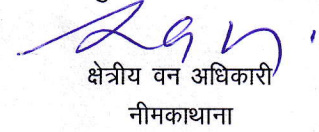 क्षेत्रीय वन अधिकारी
नीमकाथाना